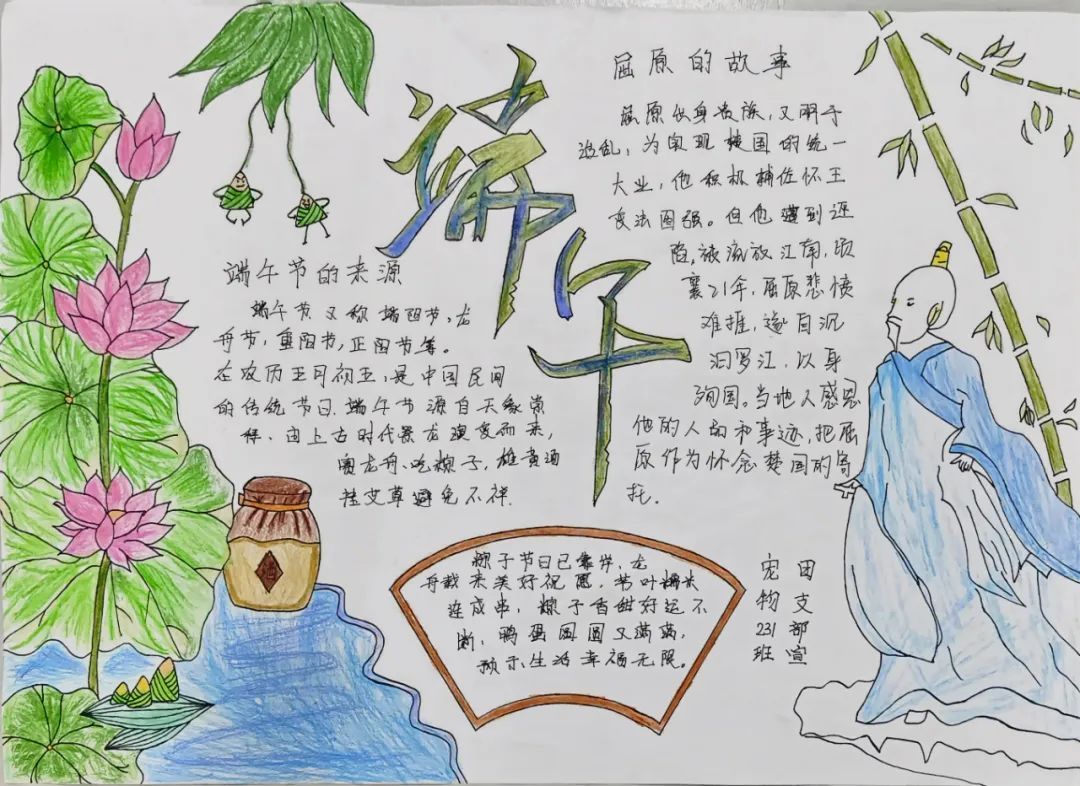 端午
端午节的来源
端午节又称端阳节、龙
舟节,重阳节,正阳节等。
在农历五月初五,是中国民间
的传统节日.端午节源自天象崇
拜、由上古时代祭龙演变而来,
赛龙舟、吃粽子,雄黄酒
挂艾草避免不祥.
屈原的故事
屈原出身贵族,又明于
治乱,为实现楚国的统一
大业,他积极辅佐怀王
变法图强。但他遭到诬
陷,被流放江南,顷
襄21年,屈原悲愤
难捱,遂自沉
汨罗江,以身
殉国。当地人感恩
他的人品和事迹,把屈
原作为怀念楚国的寄
托.
酒
粽子节日已靠岸,龙
舟载来美好祝愿.苇叶糯米
连成串,粽子香甜好运不
断,鸭蛋圆圆又满满,
预示生活幸福无限。
宠物231班
田支部宣